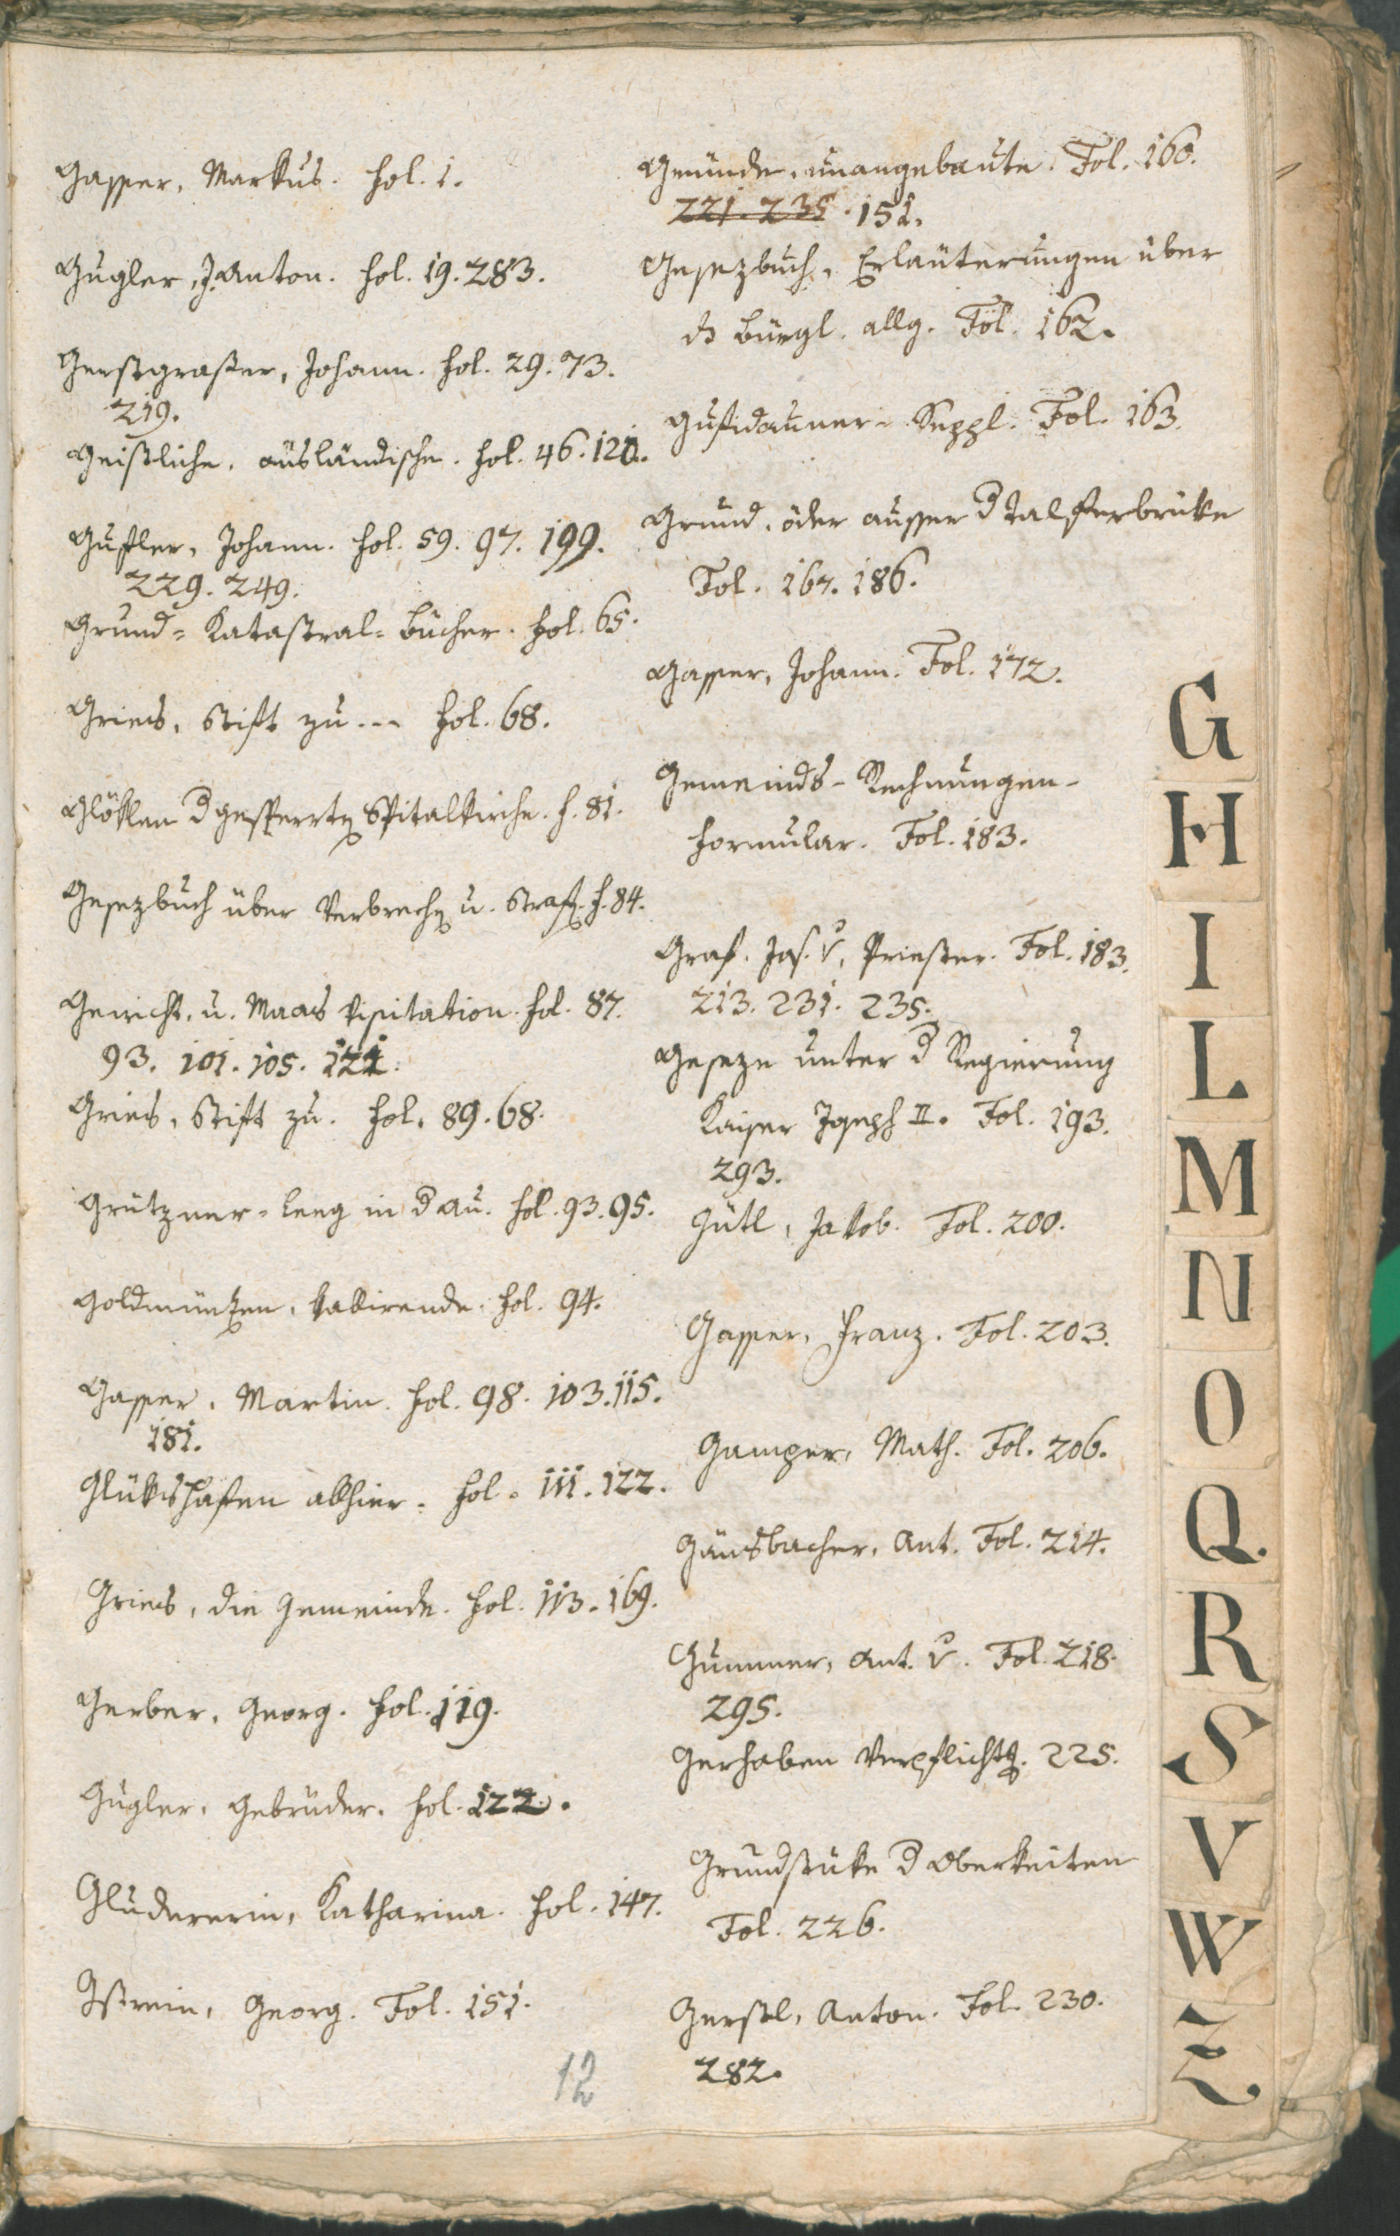 Gasser, Markus. fol. 1.
Gugler, J. Anton. fol. 19. 283.
Gerstgrasser, Johann. fol. 29. 73.
219.
Geistliche, ausländische. fol. 46. 120.
Gufler, Johann. fol. 59. 97. 199.
229. 249.
Grund= Katastral= bücher. fol. 65.
Gries, Stift zu --- fol. 68.
Glöklen d gesperrten Spitalkirche. f. 81.
Gesezbuch über Verbrechen u. Strafen. f. 84.
Gewicht, u. Maas Visitation. fol. 87.
93. 101. 105. 121.
Gries, Stift zu. fol. 89. 68.
Grützner= Leeg in d Au. fol. 93. 95.
Goldmünzen, kursirende. fol. 94.
Gasser, Martin. fol. 98. 103. 115.
181.
Glükshafen allhier. fol. 111. 122.
Gries, die Gemeinde. fol. 113. 169.
Gerber, Georg. fol. 119.
Gugler, Gebrüder. fol. 122.
Gludererin, Katharina. fol. 147.
Gstrein, Georg. Fol. 151.
12
Gründe, unangebaute. Fol. 160.
221. 235. 151.
Gesezbuch, Erläuterungen über
ds bürgl. allg. Fol. 162.
Gufidauner= Suppl. Fol. 163.
Grund, öder ausser d Talferbrüke
Fol. 167. 186.
Gasser, Johann. Fol. 172.
Gemeinds- Rechnungen-
formular. Fol. 183.
Graf. Jos. v, Priester. Fol. 183.
213. 231. 235.
Geseze unter d Regierung
Kaiser Joseph II. Fol. 193.
293.
Gütl, Jakob. Fol. 200.
Gasser, Franz. Fol. 203.
Gamper, Math. Fol. 206.
Gänsbacher, Ant. Fol. 214.
Gummer, Ant. v. Fol. 218.
295.
Gerhaben Verpflichtg. 225.
Grundstüke d Oberkeiten
Fol. 226.
Gerstl, Anton. Fol. 230.
282.
G
H
I
L
M
N
O
Q.
R
S
V
W
Z